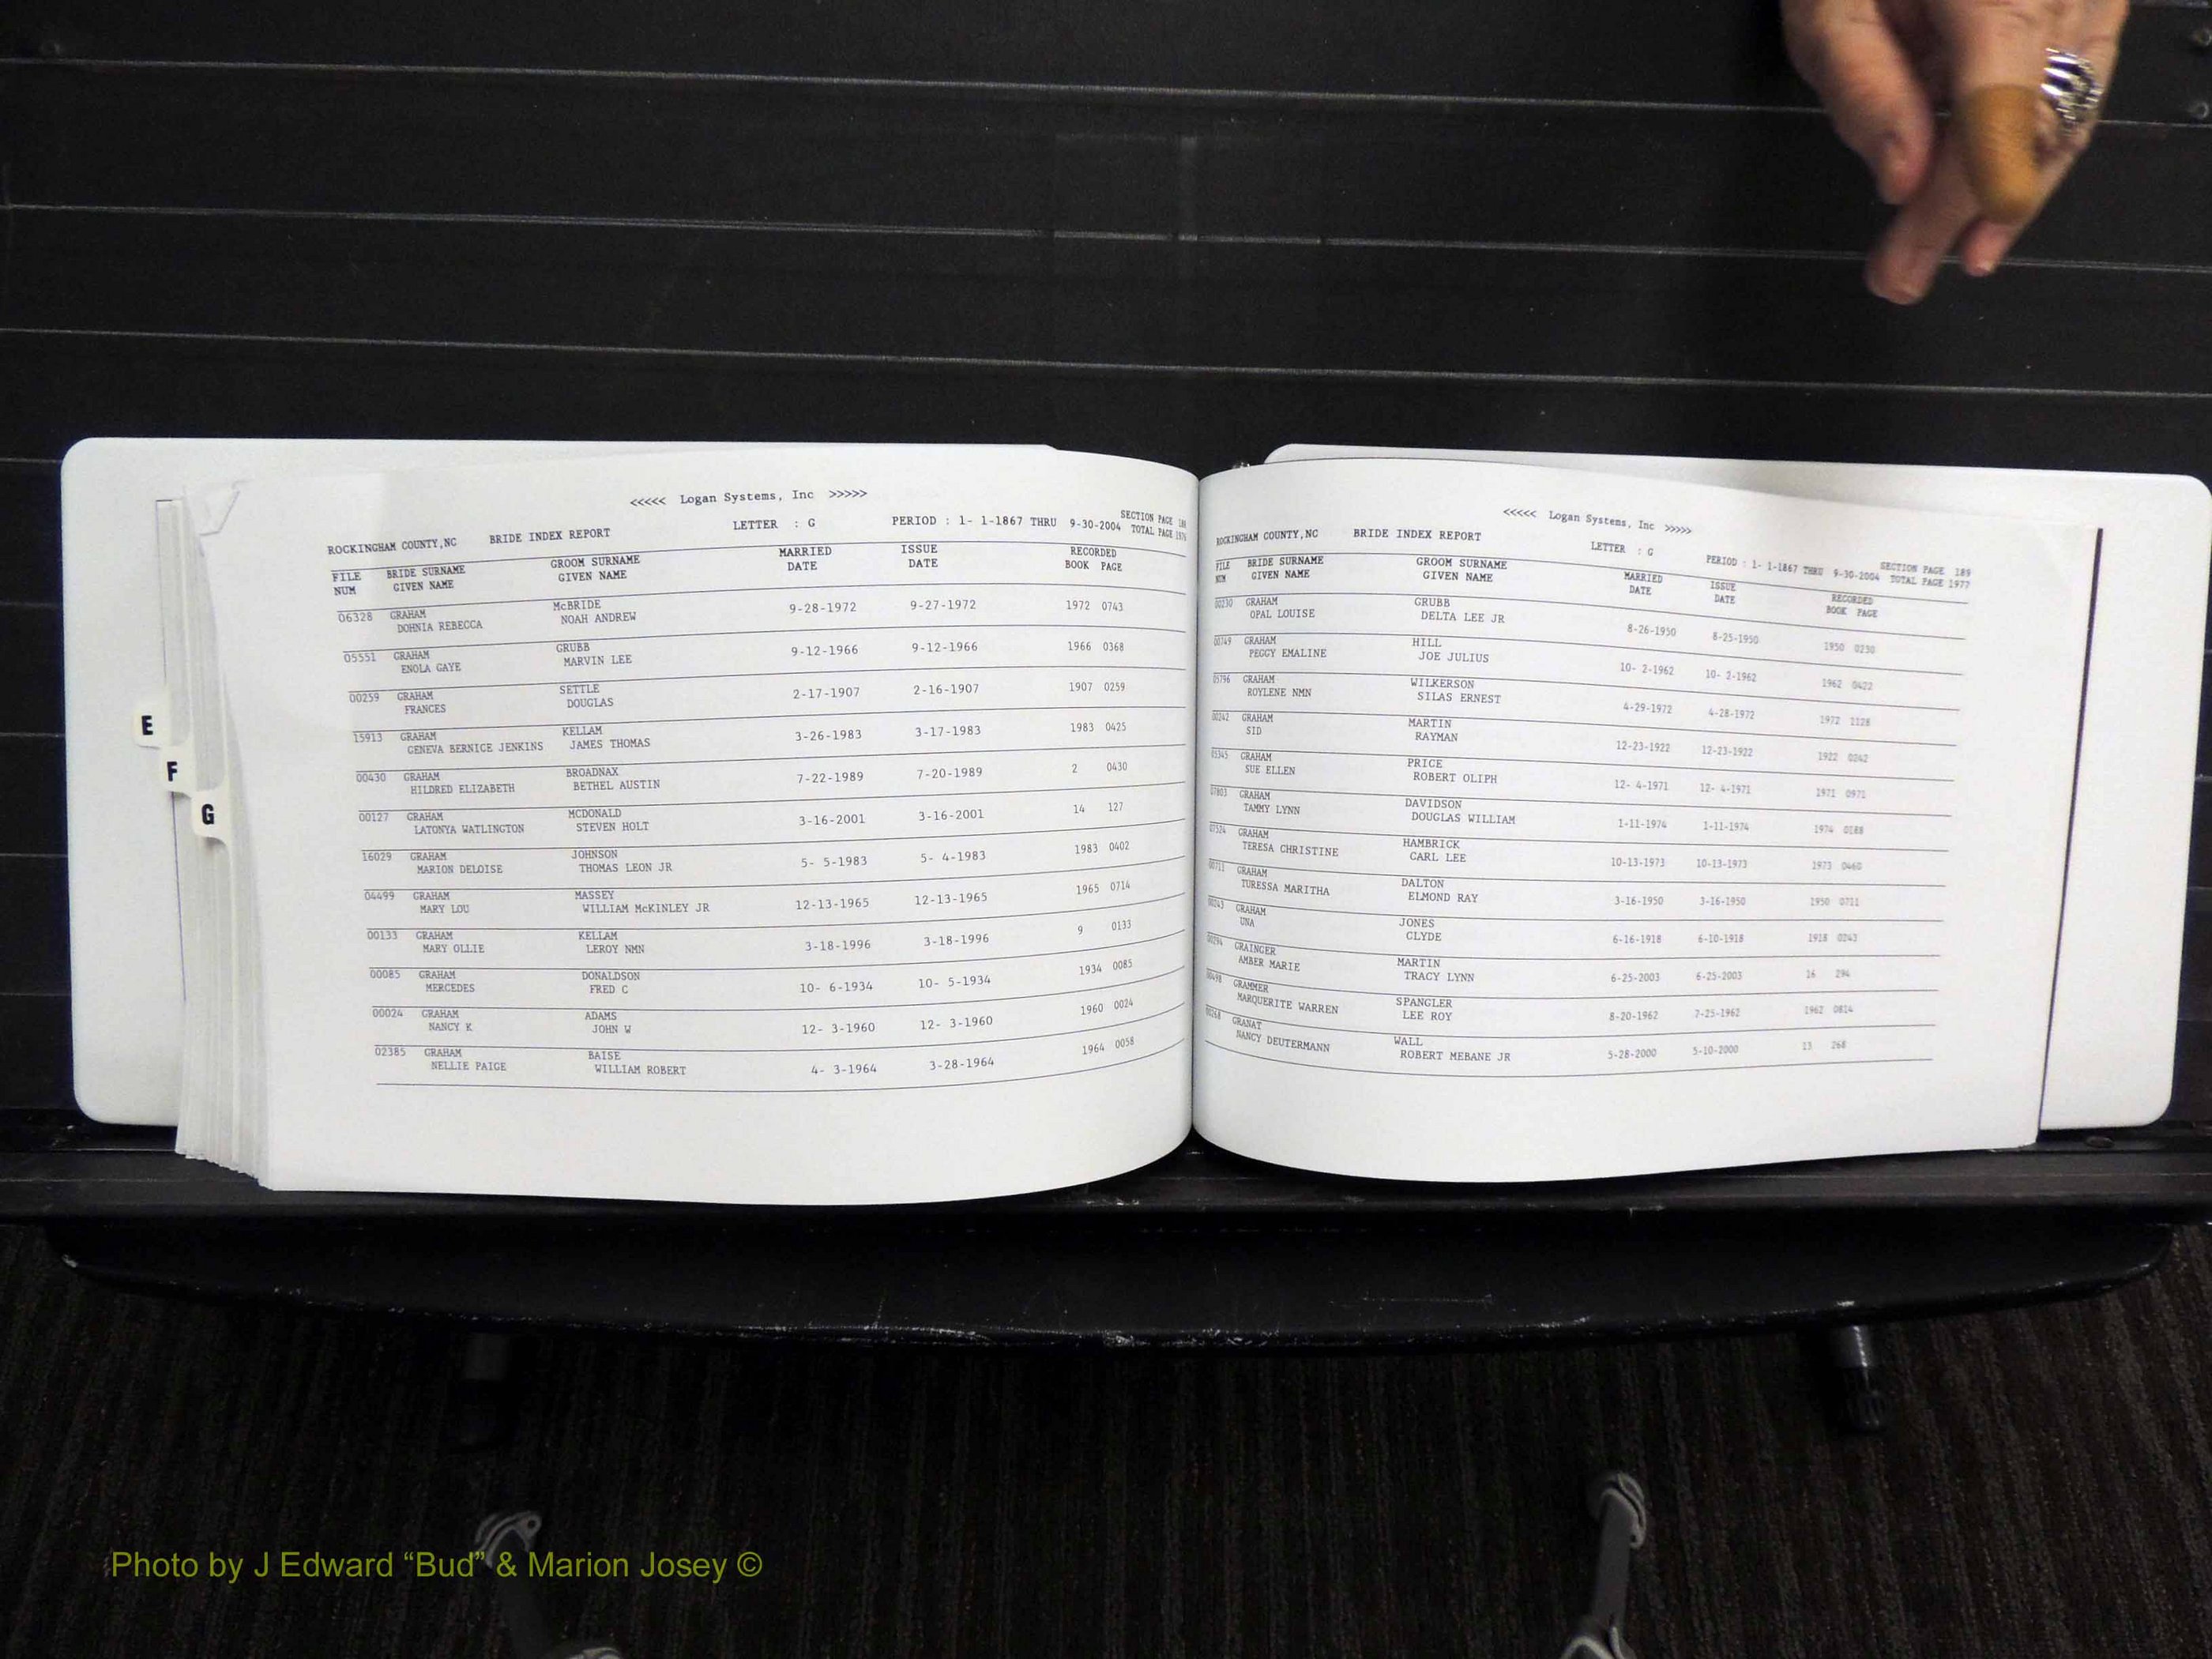 <<<<< Logan Systems, Inc >>>>>
ROCKINGHAM COUNTY,NC BRIDE INDEX REPORT LETTER : G PERIOD : 1- 1-1867 THRU 9-30-2004 SECTION PAGE TOTAL PAGE
FILE NUM BRIDE SURNAME GIVEN NAME GROOM SURNAME GIVEN NAME MARRIED DATE ISSUE DATE RECORDED BOOK PAGE
06328 GRAHAM McBRIDE 9-28-1972 9-27-1972 1972 0743
DOHNIA REBECCA NOAH ANDREW
05551 GRAHAM GRUBB 9-12-1966 9-12-1966 1966 0368
ENOLA GAYE MARVIN LEE
00259 GRAHAM SETTLE 2-17-1907 2-16-1907 1907 0259
FRANCES DOUGLAS
15913 GRAHAM KELLAM 3-26-1983 3-17-1983 1983 0425
GENEVA BERNICE JENKINS JAMES THOMAS
00430 GRAHAM BROADNAX 7-22-1989 7-20-1989 2 0430
HILDRED ELIZABETH BETHEL AUSTIN
00127 GRAHAM MCDONALD 3-16-2001 3-16-2001 14 127
LATONYA WATLINGTON STEVEN HOLT
16029 GRAHAM JOHNSON 5- 5-1983 5- 4-1983 1983 0402
MARION DELOISE THOMAS LEON JR
04499 GRAHAM MASSEY 12-13-1965 12-13-1965 1965 0714
MARY LOU WILLIAM McKINLEY JR
00133 GRAHAM KELLAM 3-18-1996 3-18-1996 9 0133
MARY OLLIE LEROY NMN
00085 GRAHAM DONALDSON 10- 6-1934 10- 5-1934 1934 0085
MERCEDES FRED C
00024 GRAHAM ADAMS 12- 3-1960 12- 3-1960 1960 0024
NANCY K JOHN W
02385 GRAHAM BAISE 4- 3-1964 3-28-1964 1964 0058
NELLIE PAIGE WILLIAM ROBERT
E
F
G
<<<<< Logan Systems, Inc >>>>>
ROCKINGHAM COUNTY,NC BRIDE INDEX REPORT LETTER : G PERIOD : 1- 1-1867 THRU 9-30-2004 SECTION PAGE 189 TOTAL PAGE 1977
FILE NUM BRIDE SURNAME GIVEN NAME GROOM SURNAME GIVEN NAME MARRIED DATE ISSUE DATE RECORDED BOOK PAGE
00230 GRAHAM GRUBB 8-26-1950 8-25-1950 1950 0230
OPAL LOUISE DELTA LEE JR
00749 GRAHAM HILL 10- 2-1962 10- 2-1962 1962 0422
PEGGY EMALINE JOE JULIUS
05796 GRAHAM WILKERSON 4-29-1972 4-28-1972 1972 1128
ROYLENE NMN SILAS ERNEST
00242 GRAHAM MARTIN 12-23-1922 12-23-1922 1922 0242
SID RAYMAN
05345 GRAHAM PRICE 12- 4-1971 12- 4-1971 1971 0971
SUE ELLEN ROBERT OLIPH
07803 GRAHAM DAVIDSON 1-11-1974 1-11-1974 1974 0188
TAMMY LYNN DOUGLAS WILLIAM
07524 GRAHAM HAMBRICK 10-13-1973 10-13-1973 1973 0460
TERESA CHRISTINE CARL LEE
00711 GRAHAM DALTON 3-16-1950 3-16-1950 1950 0711
TURESSA MARITHA ELMOND RAY
00243 GRAHAM JONES 6-16-1918 6-10-1918 1918 0243
UNA CLYDE
00294 GRAINGER MARTIN 6-25-2003 6-25-2003 16 294
AMBER MARIE TRACY LYNN
00498 GRAMMER SPANGLER 8-20-1962 7-25-1962 1962 0814
MARQUERITE WARREN LEE ROY
00268 GRANAT WALL 5-28-2000 5-10-2000 13 268
NANCY DEUTERMANN ROBERT MEBANE JR
Photo by J Edward “Bud” & Marion Josey ©